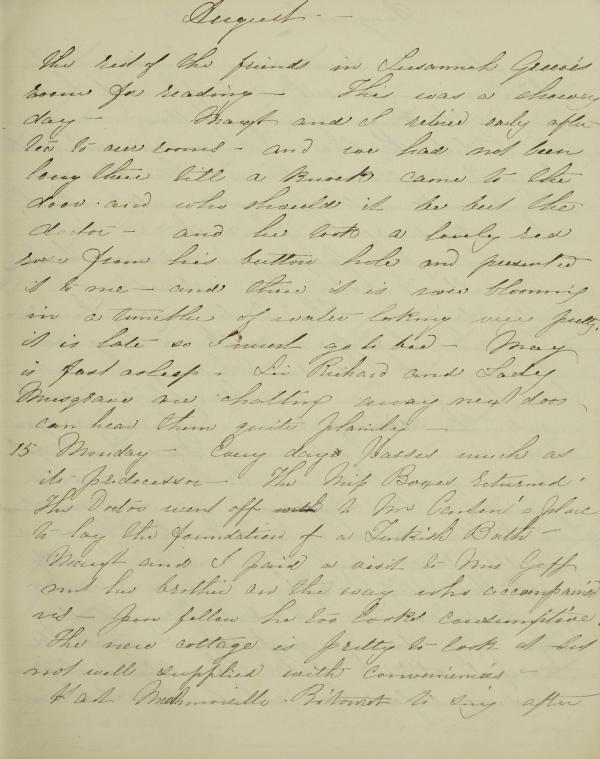 August -
the rest of the friends in Susannah Greer's
room for reading - This was a showery
day - Margt and I retired early after
tea to our rooms - and we had not been
long there till a knock came to the
door - and who should it be but the
doctor - and he took a lovely red
rose from his button hole and presented
it to me - and there it is now blooming
in a tumbler of water looking very pretty.
it is late so I must go to bed - May
is fast asleep. Sir Richard and Lady
Musgrave are chatting away next door
can hear them quite plainly -
15 Monday - Every day passes much as
its predecessor - The Miss Boyes returned.
The Doctor went off with to Mr 's place
to lay the foundation of a Turkish Bath -
Margt and I paid a visit to Mrs Goff
met her brother on the way who accompanied
us - poor fellow he too looks consumptive.
The new cottage is pretty to look at but
not well supplied with conveniences -
Had to sing after